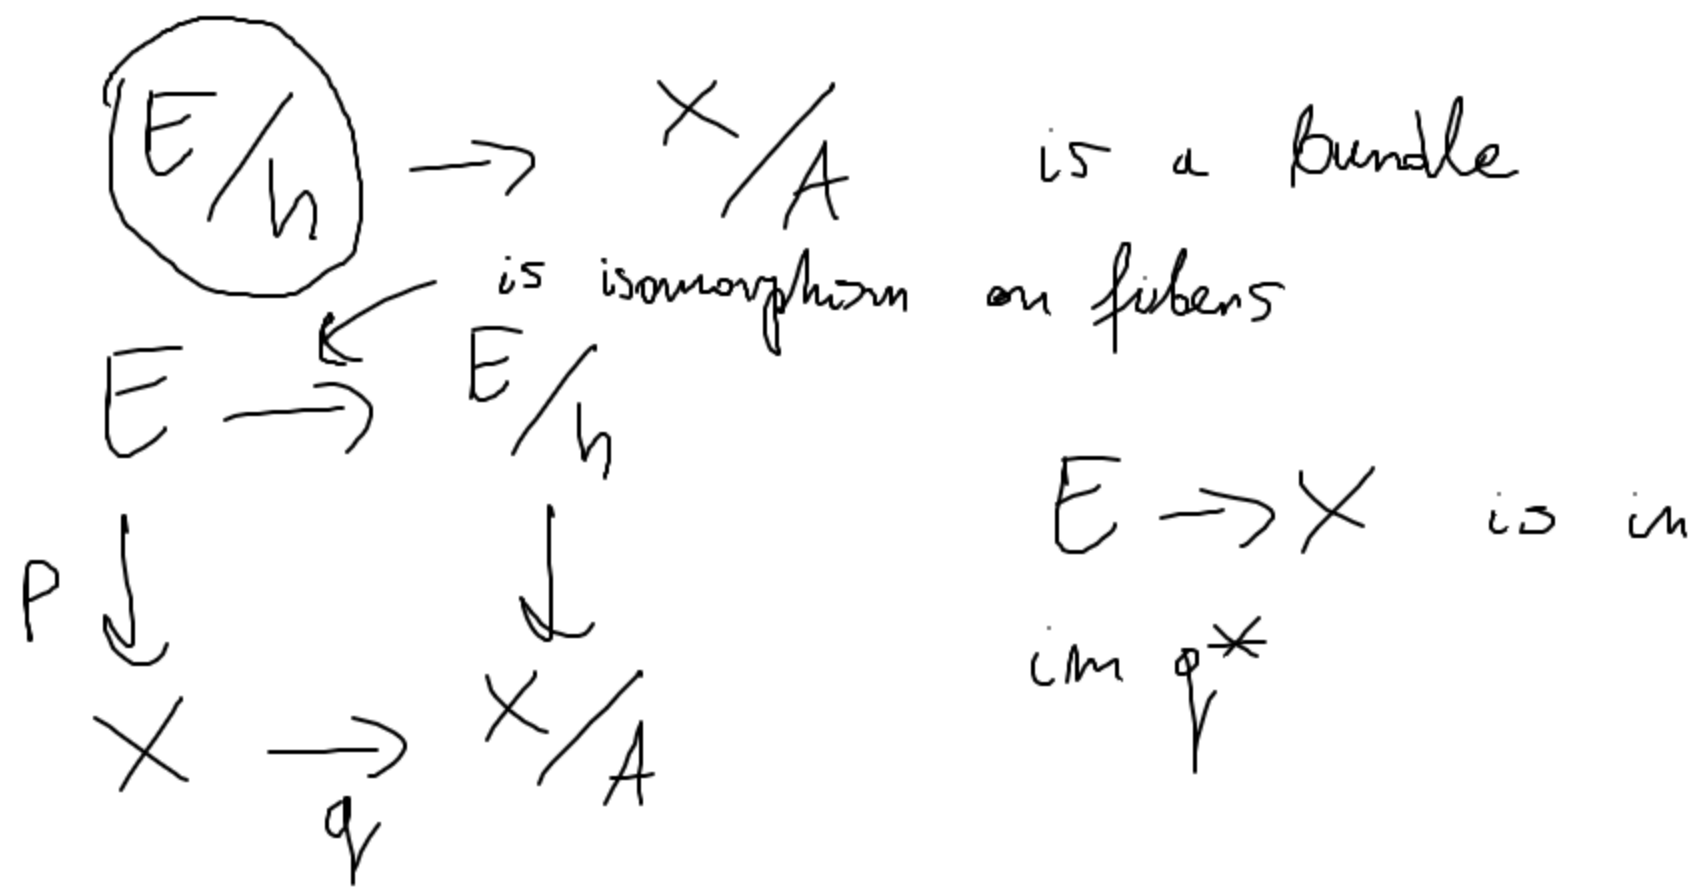 E/h → X/A is a bundle
is isomorphism on fibers
E → E/h
E → X is in
p
im q*
X → X/A
q